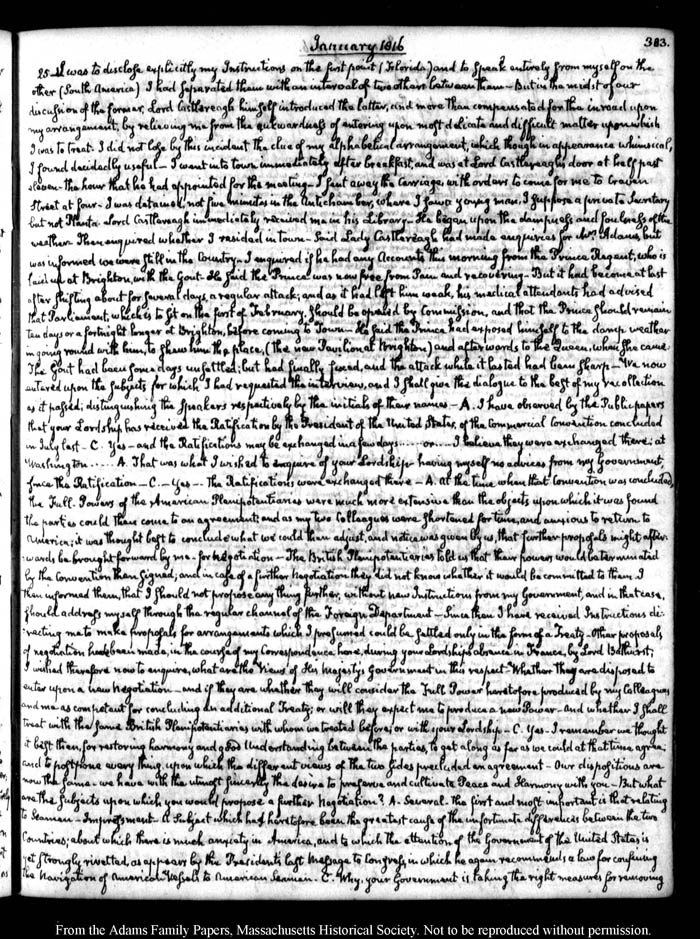 January 1816
313.
25. I was to disclose explicitly my Instructions on the first point (Florida) and to speak entirely from myself on the
other (South America) I had separated them with an interval of two others between them — But in the midst of our
discussion of the former, Lord Castlereagh himself introduced the latter, and more than compensated for the inroad upon
my arrangement, by relieving me from the aukwardness of entering upon most delicate and difficult matter upon which
I was to treat. I did not lose by this incident the clue of my alphabetical arrangement, which though in appearance whimsical,
I found decidedly useful — I went into town immediately after breakfast, and was at Lord Castlereagh's door at half past
eleven the hour that he had appointed for the meeting — I sent away the Carriage, with orders to come for me to Craven
Street at four — I was detained, not five minutes in the Antichamber, where I found a young man, I suppose a private Secretary
but not Planta. Lord Castlereagh immediately received me in his Library — He began upon the dampness and foulness of the
weather. Then enquired whether I resided in town — Said Lady Castlereagh had made enquiries for Mrs. Adams, but
was informed we were still in the Country. I enquired if he had any Accounts this morning from the Prince Regent, who is
laid up at Brighton, with the Gout. He said the Prince was now free from Pain and recovering — But it had become at last
after shifting about for several days, a regular attack; and as it had left him weak, his medical attendants had advised
that Parliament, which is to sit on the first of February, should be opened by Commission, and that the Prince should remain
ten days or a fortnight longer at Brighton, before coming to Town — He said the Prince had exposed himself to the damp weather
in going round with him, to shew him the place, (the new Pavilion at Brighton) and afterwards to the Queen, when She came.
The Gout had been some days unsettled; but had finally fixed, and the attack while it lasted had been sharp — We now
entered upon the subjects for which I had requested the interview, and I shall give the dialogue to the best of my recollection
as it passed; distinguishing the Speakers respectively by the initials of their names — A. I have observed by the Public papers
that your Lordship has received the Ratification by the President of the United States, of the Commercial Convention concluded
in July last — C. Yes — and the Ratifications may be exchanged in a few days ..... or .... I believe they were exchanged there; at
Washington ..... A. That was what I wished to enquire of your Lordship — having myself no advices from my Government
since the Ratification — C. — Yes — The Ratifications were exchanged there — A. At the time when that Convention was concluded,
the Full Powers of the American Plenipotentiaries were much more extensive than the objects upon which it was found
the parties could then come to an agreement; and as my two Colleagues were shortened for time, and anxious to return to
America; it was thought best to conclude what we could then adjust, and notice was given by us, that further proposals might after-
wards be brought forward by me — for negotiation — The British Plenipotentiaries told us that their powers would be terminated
by the Convention then signed; and in case of a further Negotiation they did not know whether it would be committed to them. I
then informed them, that I should not propose any thing further, without new Instructions from my Government, and in that case,
should address myself through the regular channel of the Foreign Department — Since then I have received Instructions di-
recting me to make proposals for arrangements which I presumed could be settled only in the form of a Treaty — Other proposals
of negotiation have been made, in the course of my Correspondence here, during your Lordship's absence in France, by Lord Bathurst;
I wished therefore now to enquire, what are the Views of His Majesty's Government in this respect. Whether they are disposed to
enter upon a new Negotiation — and if they are whether they will consider the Full Power heretofore produced by my Colleagues
and me as competent for concluding an additional Treaty; or will they expect me to produce a new Power — And whether I shall
treat with the same British Plenipotentiaries with whom we treated before, or with your Lordship — C. Yes — I remember we thought
it best then, for restoring harmony and good Understanding between the parties, to get along as far as we could at that time agree,
and to postpone every thing, upon which the different views of the two sides precluded an agreement — Our dispositions are
now the same — we have with the utmost sincerity the desire to preserve and cultivate Peace and Harmony with you — But what
are the Subjects upon which you would propose a further Negotiation? A. Several. The first and most important is that relating
to Seamen — Impressment — A Subject which has heretofore been the greatest cause of the unfortunate differences between the two
Countries; about which there is much anxiety in America, and to which the attention of the Government of the United States is
yet strongly rivetted, as appears by the President's last Message to Congress, in which he again recommends a law for confining
the Navigation of American Vessels to American Seamen. C. Why, your Government is taking the right measures for removing
From the Adams Family Papers, Massachusetts Historical Society. Not to be reproduced without permission.